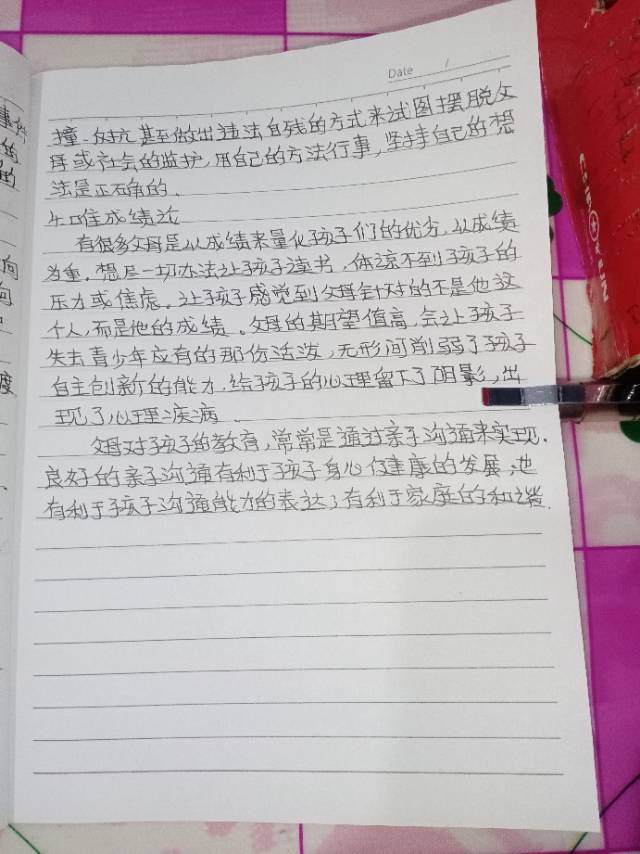 Date /
撞、对抗甚至做出违法自残的方式来试图摆脱父
母或社会的监护,用自己的方法行事,坚持自己的想
法是正确的.
4.唯成绩论
有很多父母是以成绩来量化孩子们的优劣,以成绩
为重.想尽一切办法让孩子读书,体谅不到孩子的
压力或焦虑.让孩子感觉到父母针对的不是他这
个人,而是他的成绩。父母的期望值高,会让孩子
失去青少年应有的那份活泼,无形间削弱了孩子
自主创新的能力,给孩子的心理留下了阴影,出
现了心理疾病
父母对孩子的教育,常常是通过亲子沟通来实现.
良好的亲子沟通有利于孩子身心健康的发展,也
有利于孩子沟通能力的表达,有利于家庭的和谐.
事件
的
的
向
向
度